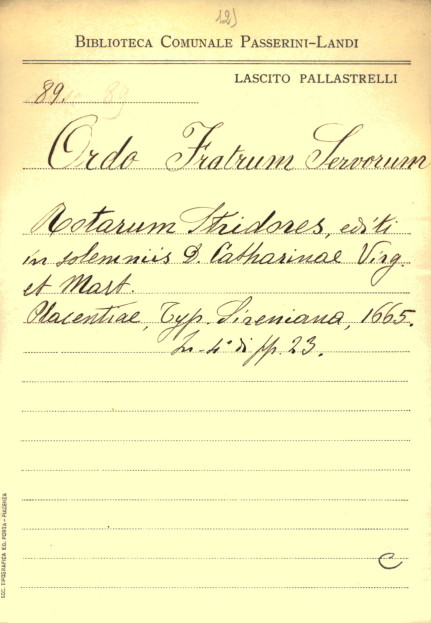 12)
BIBLIOTECA COMUNALE PASSERINI-LANDI
LASCITO PALLASTRELLI
89.
Ordo Fratrum Servorum
Rotarum Stridores, editi
in solemniis D. Catharinae Virg.
et Mart.
Placentiae, Typ. Sireniana, 1665.
In-4° di pp. 23.
C
SOC. TIPOGRAFICA ED. PORTA - PIACENZA